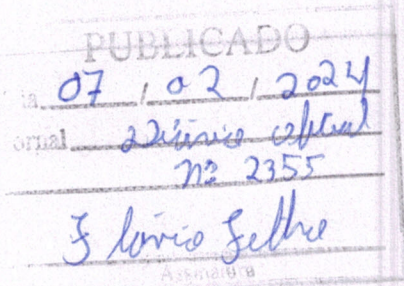 PUBLICADO
07 / 02 / 2024
ornal Diário oficial
nº 2355
Assinatura